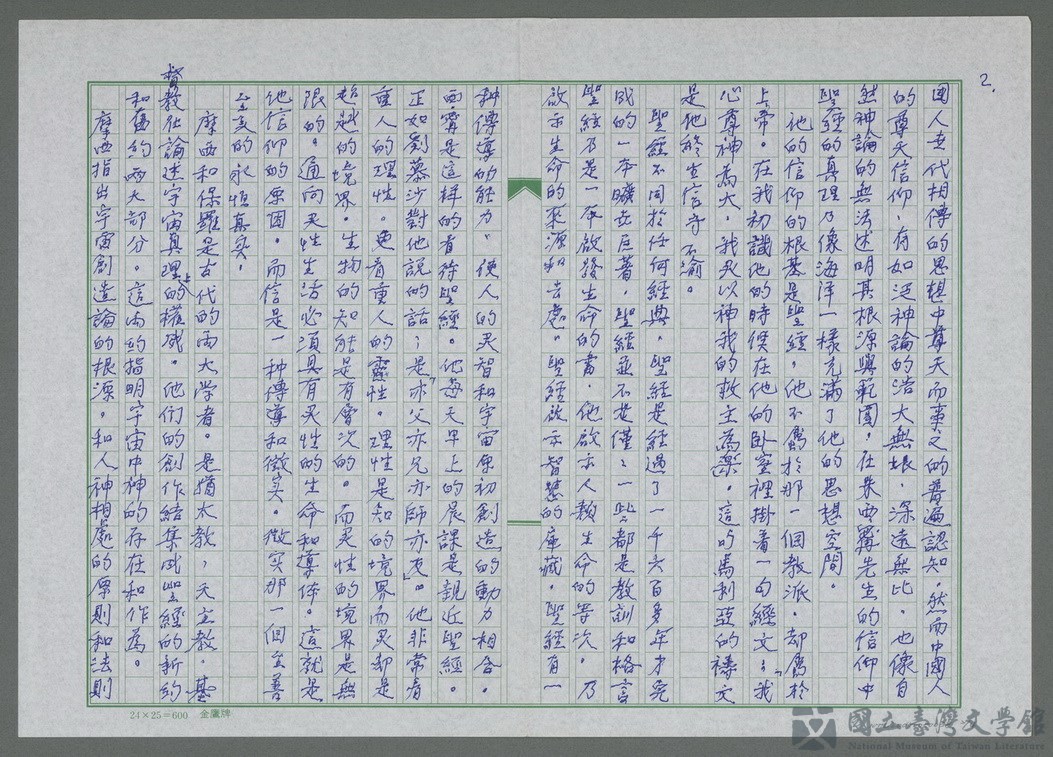 2.
國人世代相傳的思想中尊天而事之的普遍認知。然而中國人
的尊天信仰，有如泛神論的浩大無垠，深遠無比。也像自
然神論的無法述明其根源與範圍，在朱西甯先生的信仰中
聖經的真理乃像海洋一樣充滿了他的思想空間。
他的信仰的根基是聖經，他不屬於那一個教派。却屬於
上帝。在我初識他的時候在他的卧室裡掛着一句經文：「我
心尊神為大，我灵以神我的救主為樂。這吋馬利亞的禱文
是他終生信守不渝。
聖經不同於任何經典，聖經是經過了一千六百多年才完
成的一本曠世巨著，聖經並不是僅僅一些都是教訓和格言
聖經乃是一本啟發生命的書，他啟示人類生命的等次。乃
啟示生命的來源和去處。聖經啟示智慧的庫藏，聖經有一
种傳導的能力、使人的灵智和宇宙原初創造的動力相合。
西甯是這样的看待聖經。他每天早上的晨課是親近聖經。
正如劉慕沙對他說的話；是「亦父亦兄亦師亦友」。他非常看
重人的理性。更看重人的靈性。理性是知的境界而灵却是
超越的境界。生物的知能是有層次的。而灵性的境界是無
限的。通向灵性生活必須具有灵性的生命和導体。這就是
他信仰的原因。而信是一种傳導和徵实。徵实那一個至善
至美的永恒真实。
摩西和保羅是古代的兩大学者。是猶太教，天主教，基
督教社論述宇宙真理上的權威。他们的創作結集成聖經的新約
和舊約兩大部分。這兩約指明宇宙中神的存在和作為。
摩西指出宇宙創造論的根源。和人神相處的原則和法則
24×25=600 金鷹牌
國立臺灣文學館
National Museum of Taiwan Literature